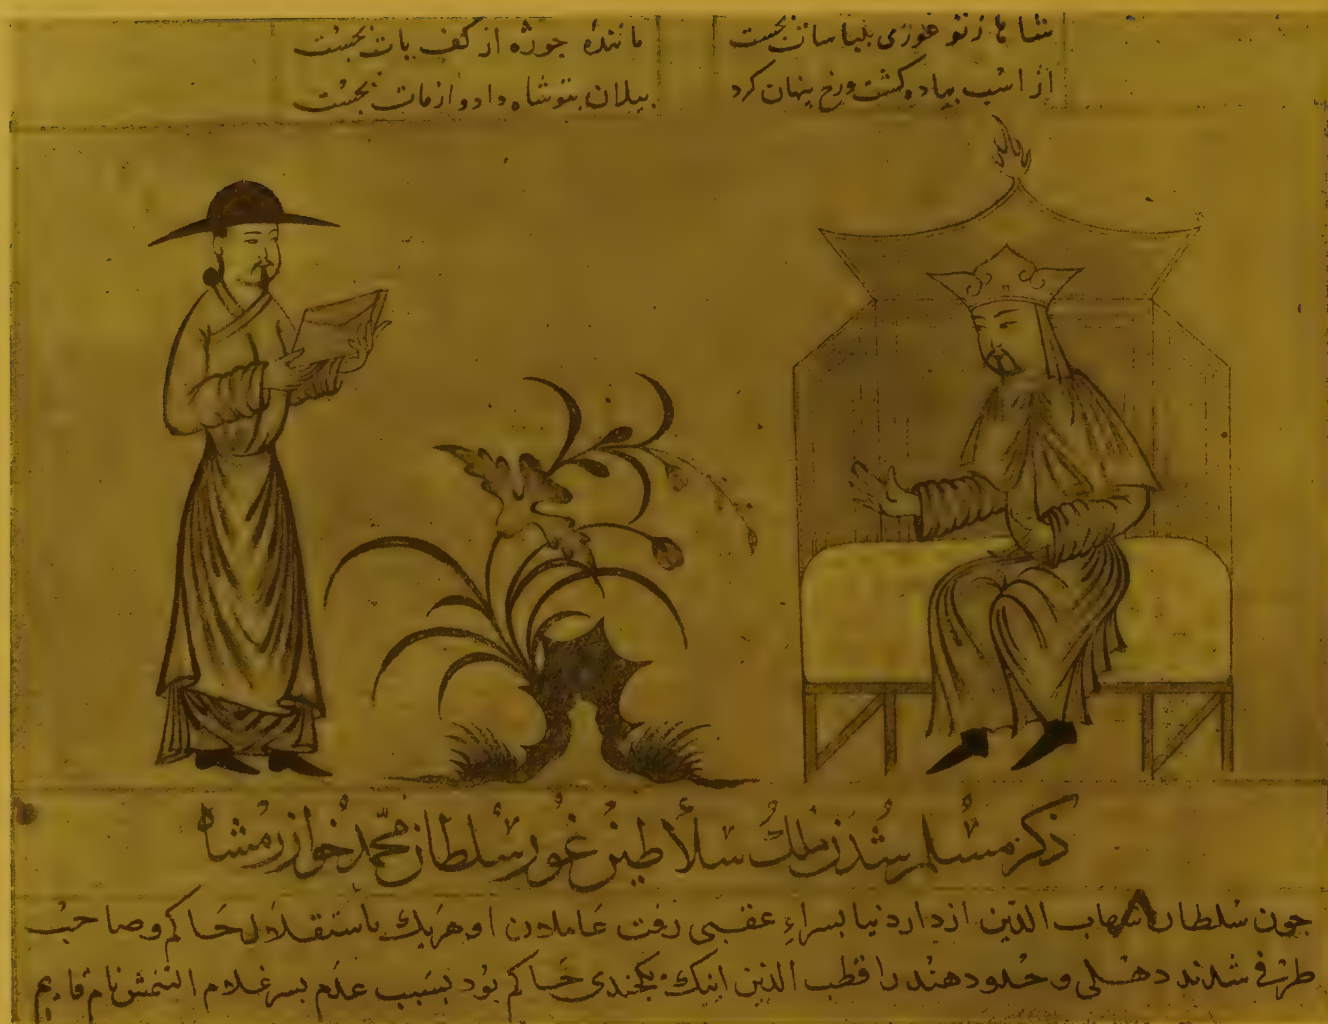 شاها ز تو غوری بلباسات بجست
مانندهٔ جوژه از کف بات بجست
از اسب بیاده کشت و رخ بنهان کرد
بیلان بتو شاه داد و از مات بجست
ذکر مسلم شدن ملک سلاطین غور سلطان محمد خوارزمشاه
جون سلطان شهاب الدین از دار دنیا بسراء عقبی رفت غاملان او هریک باستقلال حاکم و صاحب
طرفی شدند دهلی و حدود هند را قطب الدین ایبک یکجندی حاکم بود بسبب عدم بسر غلام التتمش نام قایم